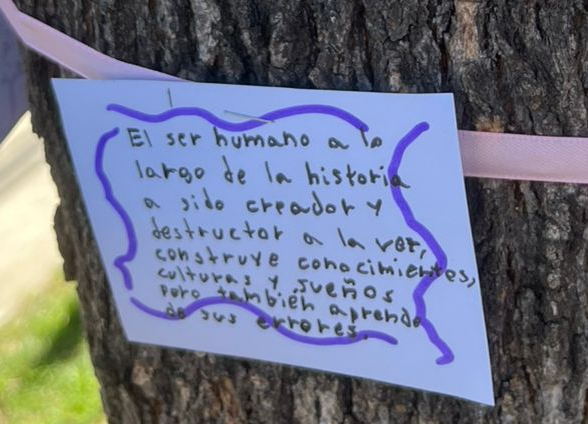 El ser humano a lo
largo de la historia
a sido creador y
destructor a la vez,
construye conocimientes,
culturas y sueños
pero también aprende
de sus errores.